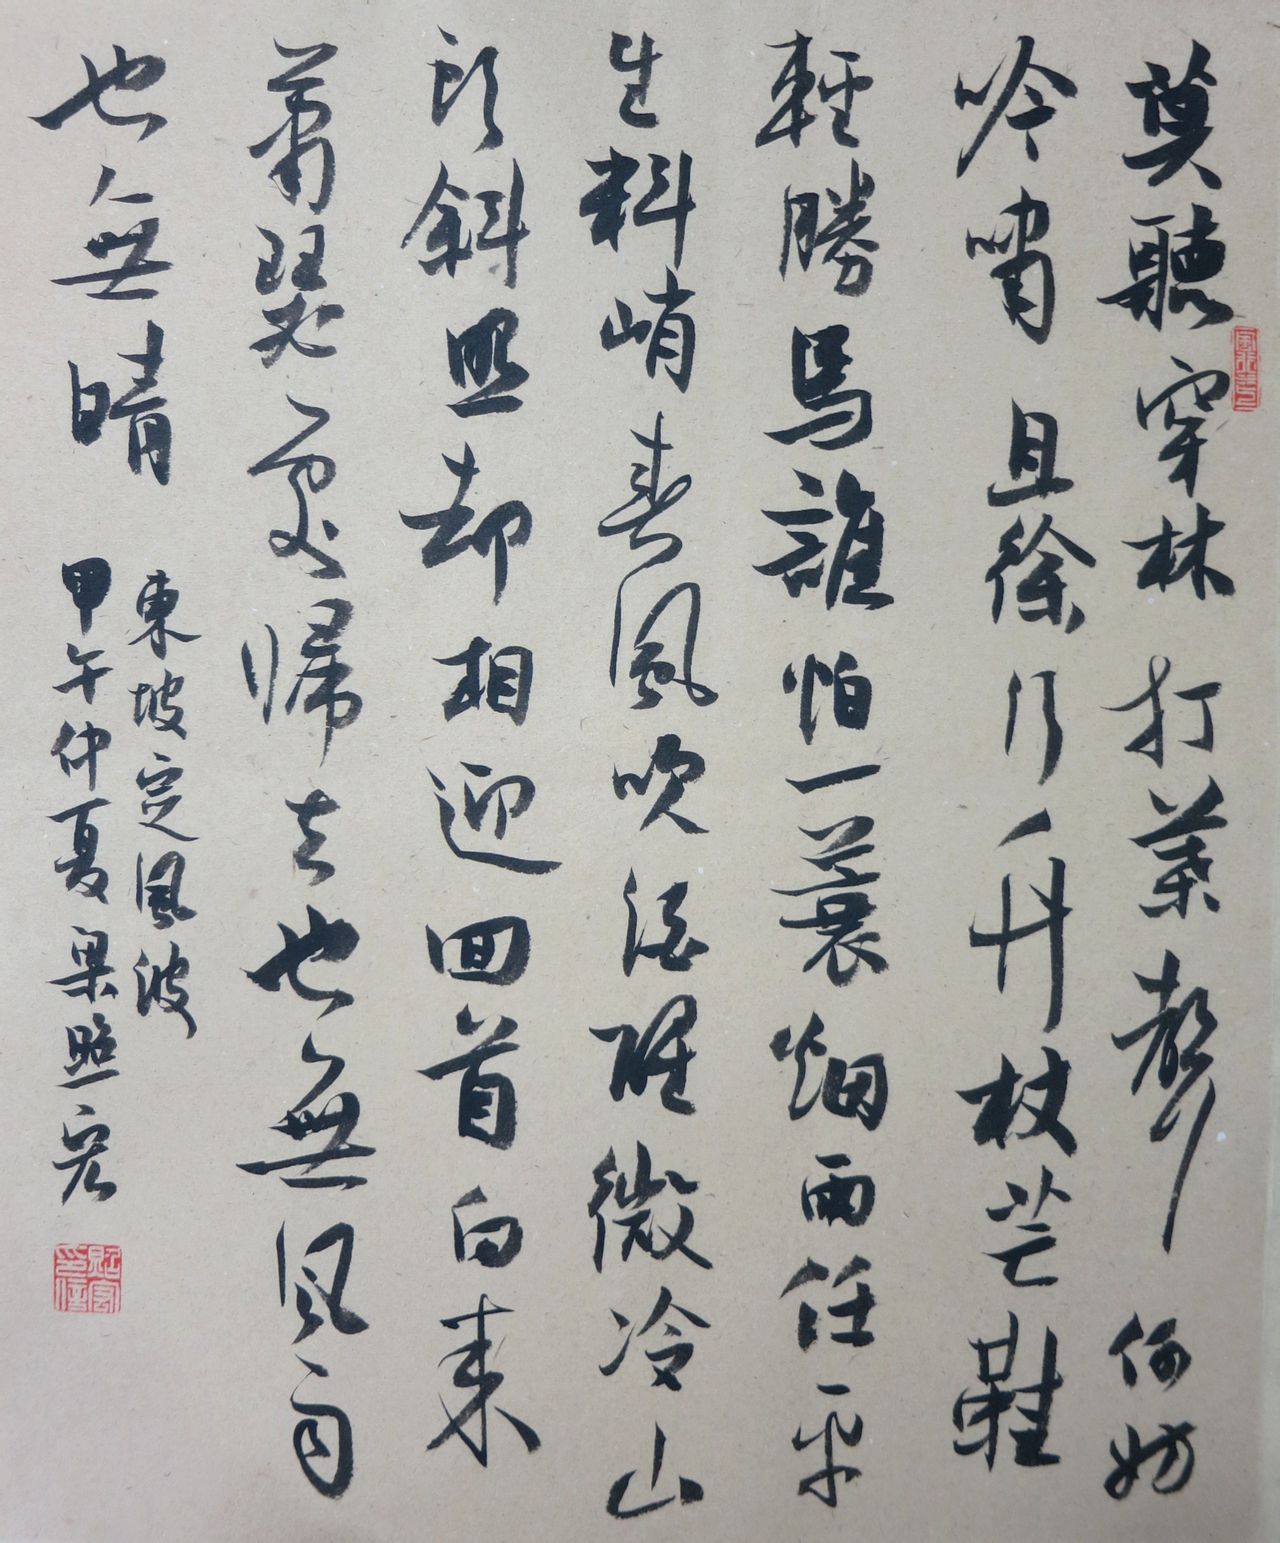 莫聽穿林打葉聲何妨
吟嘯且徐行竹杖芒鞋
輕勝馬誰怕一蓑烟雨任平
生料峭春風吹酒醒微冷山
頭斜照却相迎回首向来
蕭瑟處歸去也無風雨
也無晴
東坡定風波
甲午仲夏梁照宏